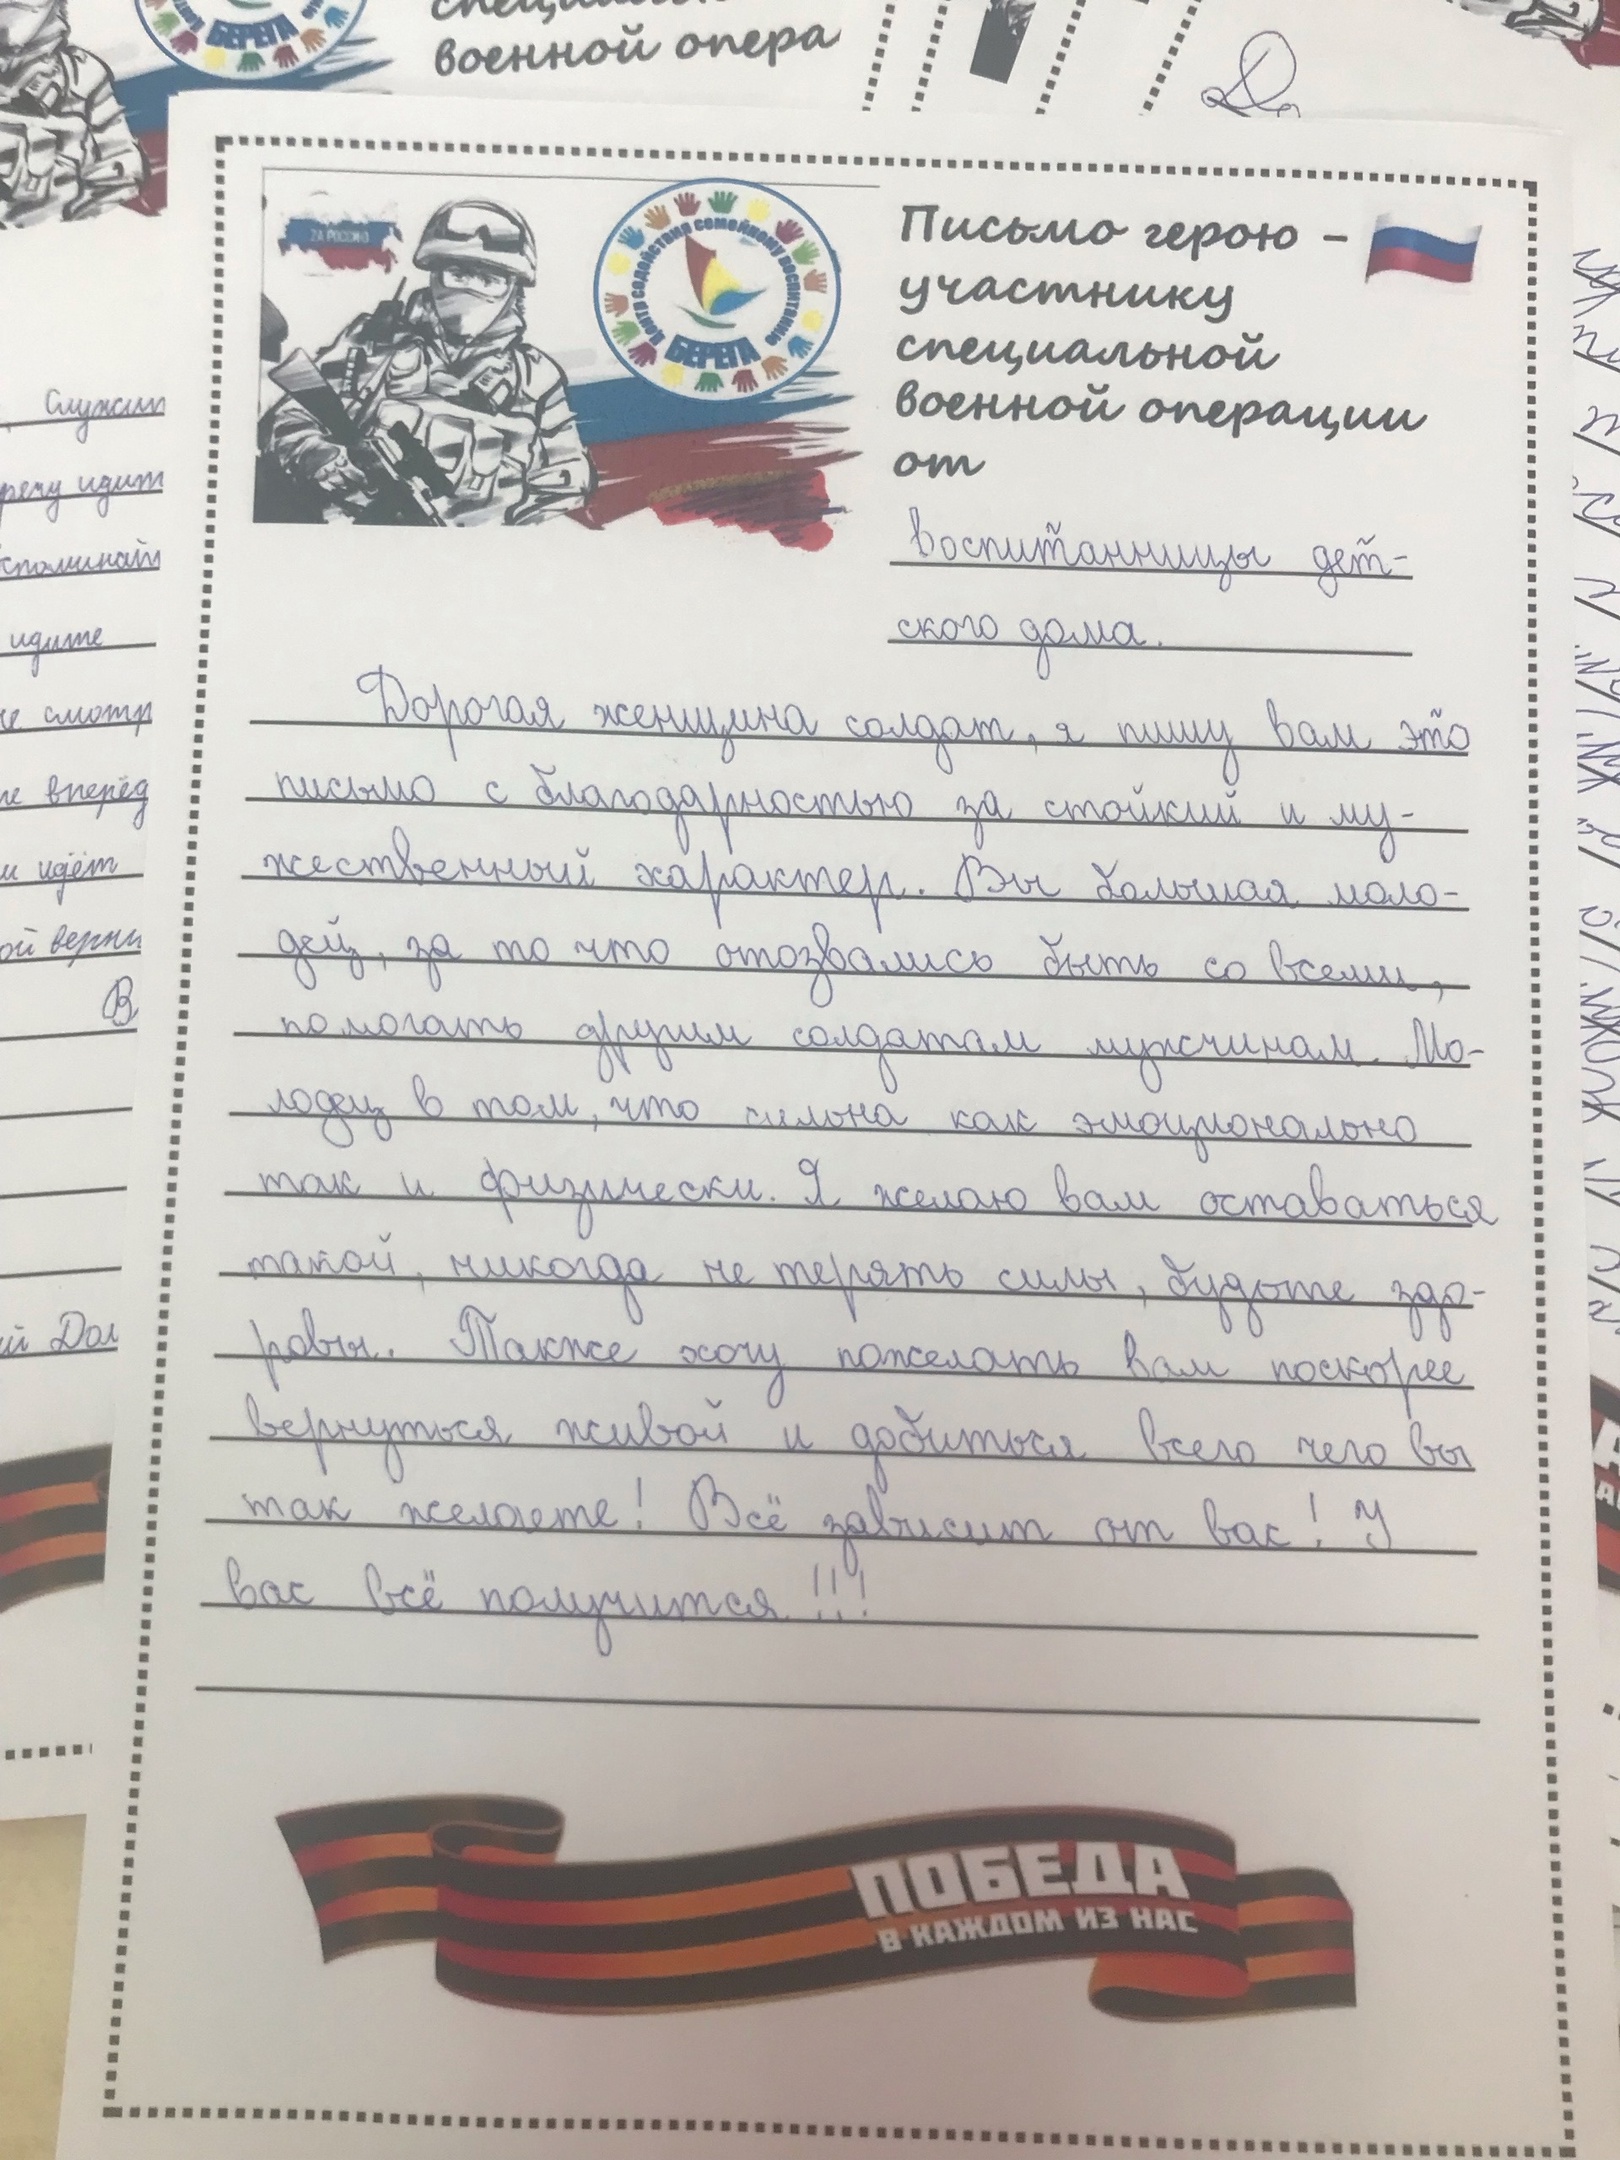 специальной
военной опера
БЕРЕГА
ZА РОССИЮ
ЦЕНТР СОДЕЙСТВИЯ СЕМЕЙНОМУ ВОСПИТАНИЮ
БЕРЕГА
Письмо герою –
участнику
специальной
военной операции
от
воспитанницы дет-
ского дома.
Дорогая женщина солдат, я пишу вам это
письмо с благодарностью за стойкий и му-
жественный характер. Вы большая моло-
дец, за то что отозвались быть со всеми,
помогать другим солдатам мужчинам. Мо-
лодец в том, что сильна как эмоционально
так и физически. Я желаю вам оставаться
такой, никогда не терять силы, будьте здо-
ровы. Также хочу пожелать вам поскорее
вернуться живой и добиться всего чего вы
так желаете! Всё зависит от вас! У
вас всё получится!!!
ПОБЕДА
В КАЖДОМ ИЗ НАС
Служит
идит
идите
не смотр
вперёд
идёт
В
Дол